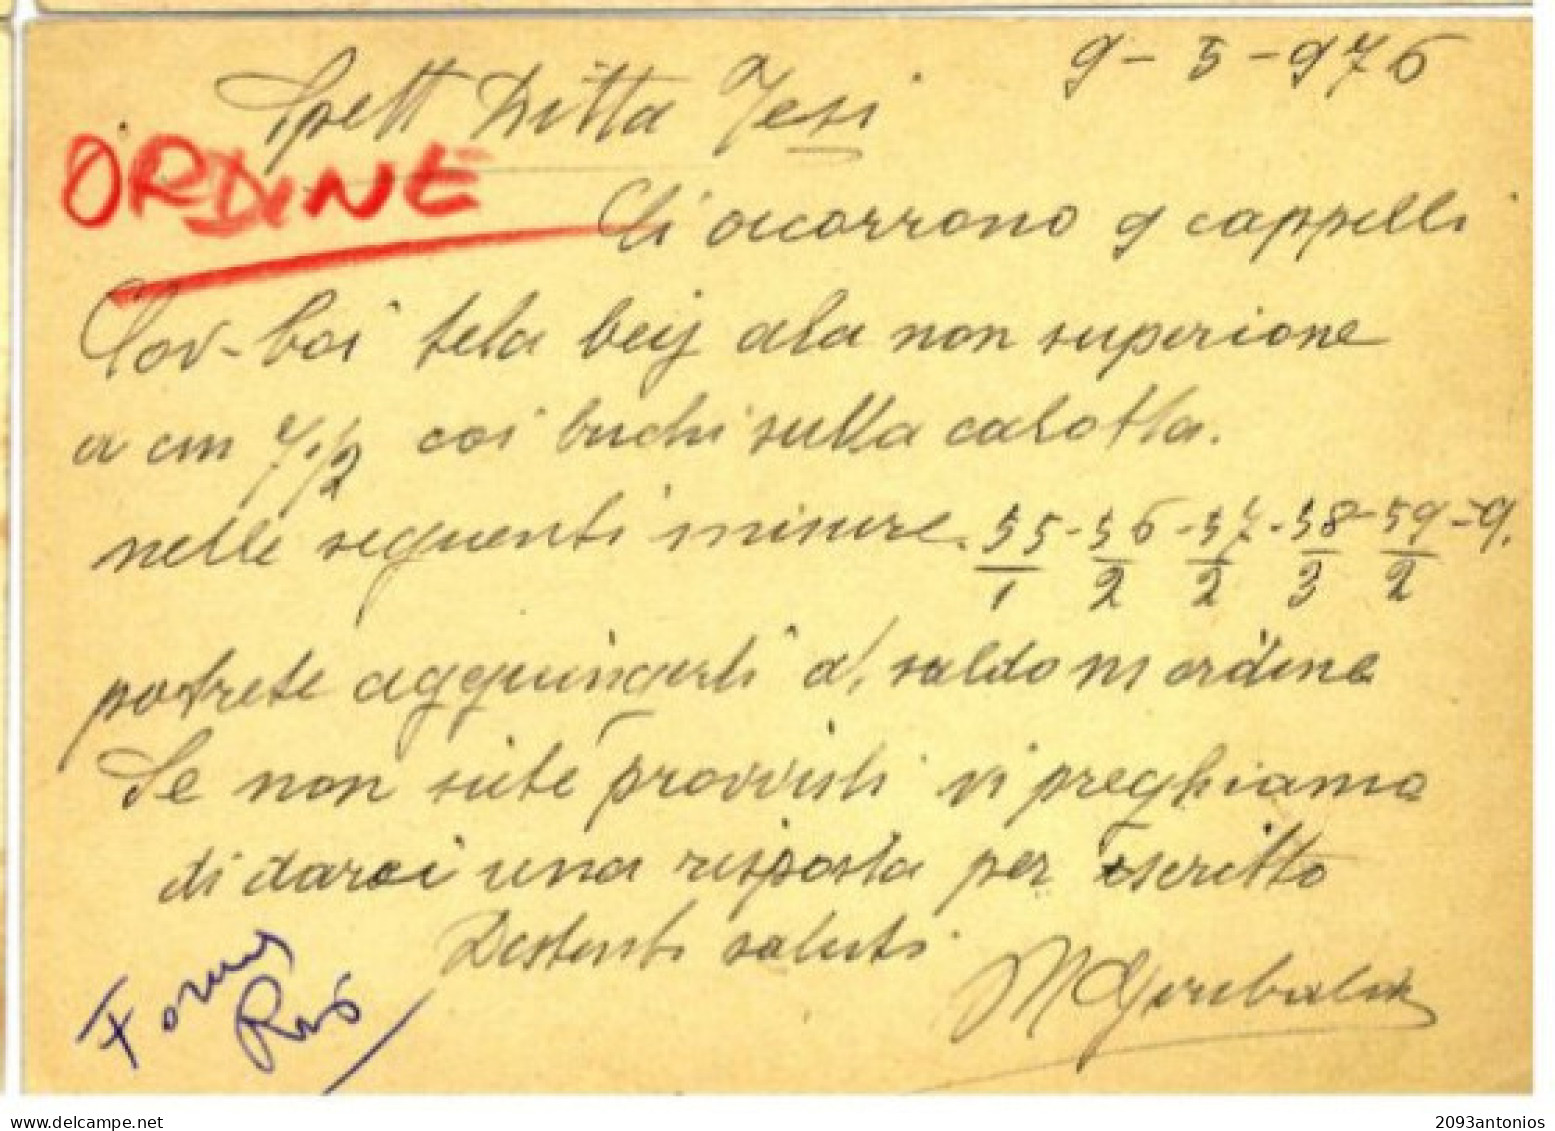 9-5-976
Spett Ditta Tesi
ORDINE
Ci occorrono 9 cappelli
Cov-boi tela beij ala non superione
a cm 7 1/2 coi buchi sulla calotta.
nelle seguenti misure. 55/1 - 56/2 - 57/2 - 58/3 - 59/2 - 9.
potrete aggiungerli al saldo ns ordine
Se non siete provvisti vi preghiamo
di darci una risposta per escritto
Distinti saluti
M Garibaldi
delcampe.net
2093antonios